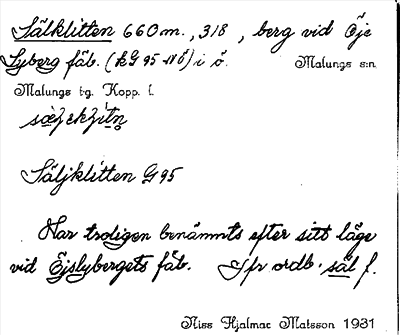 Sälklitten 660 m., 318, berg vid Öje
Lyberg fäb. (k G 95 NÖ) i ö. Malungs s:n
Malungs t:g. Kopp. l.
Säljklitten G 95
Har troligen benämnts efter sitt läge
vid Öjslybergets fäb. Jfr ordb. säl f.
Niss Hjalmar Matsson 1931